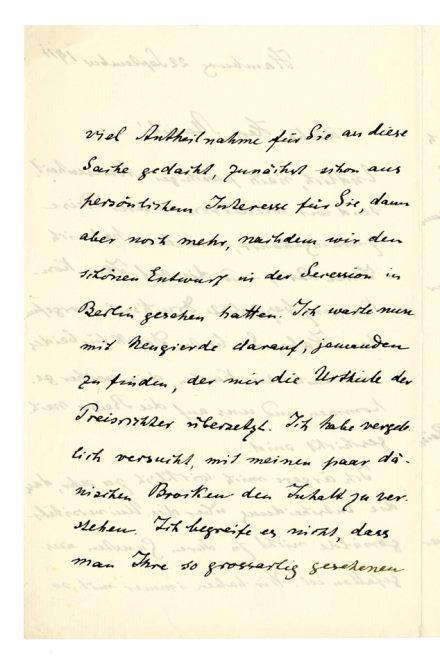 viel Antheilnahme für Sie an diese
Sache gedacht, zunächst schon aus
persönlichem Interesse für Sie, dann
aber noch mehr, nachdem wir den
schönen Entwurf in der Secession in
Berlin gesehen hatten. Ich warte nun
mit Neugierde darauf, jemanden
zu finden, der mir die Urtheile der
Preisrichter übersetzt. Ich habe vergeb-
lich versucht, mit meinen paar dä-
nischen Brocken den Inhalt zu ver-
stehen. Ich begreife es nicht, dass
man Ihre so grossartig gesehenen